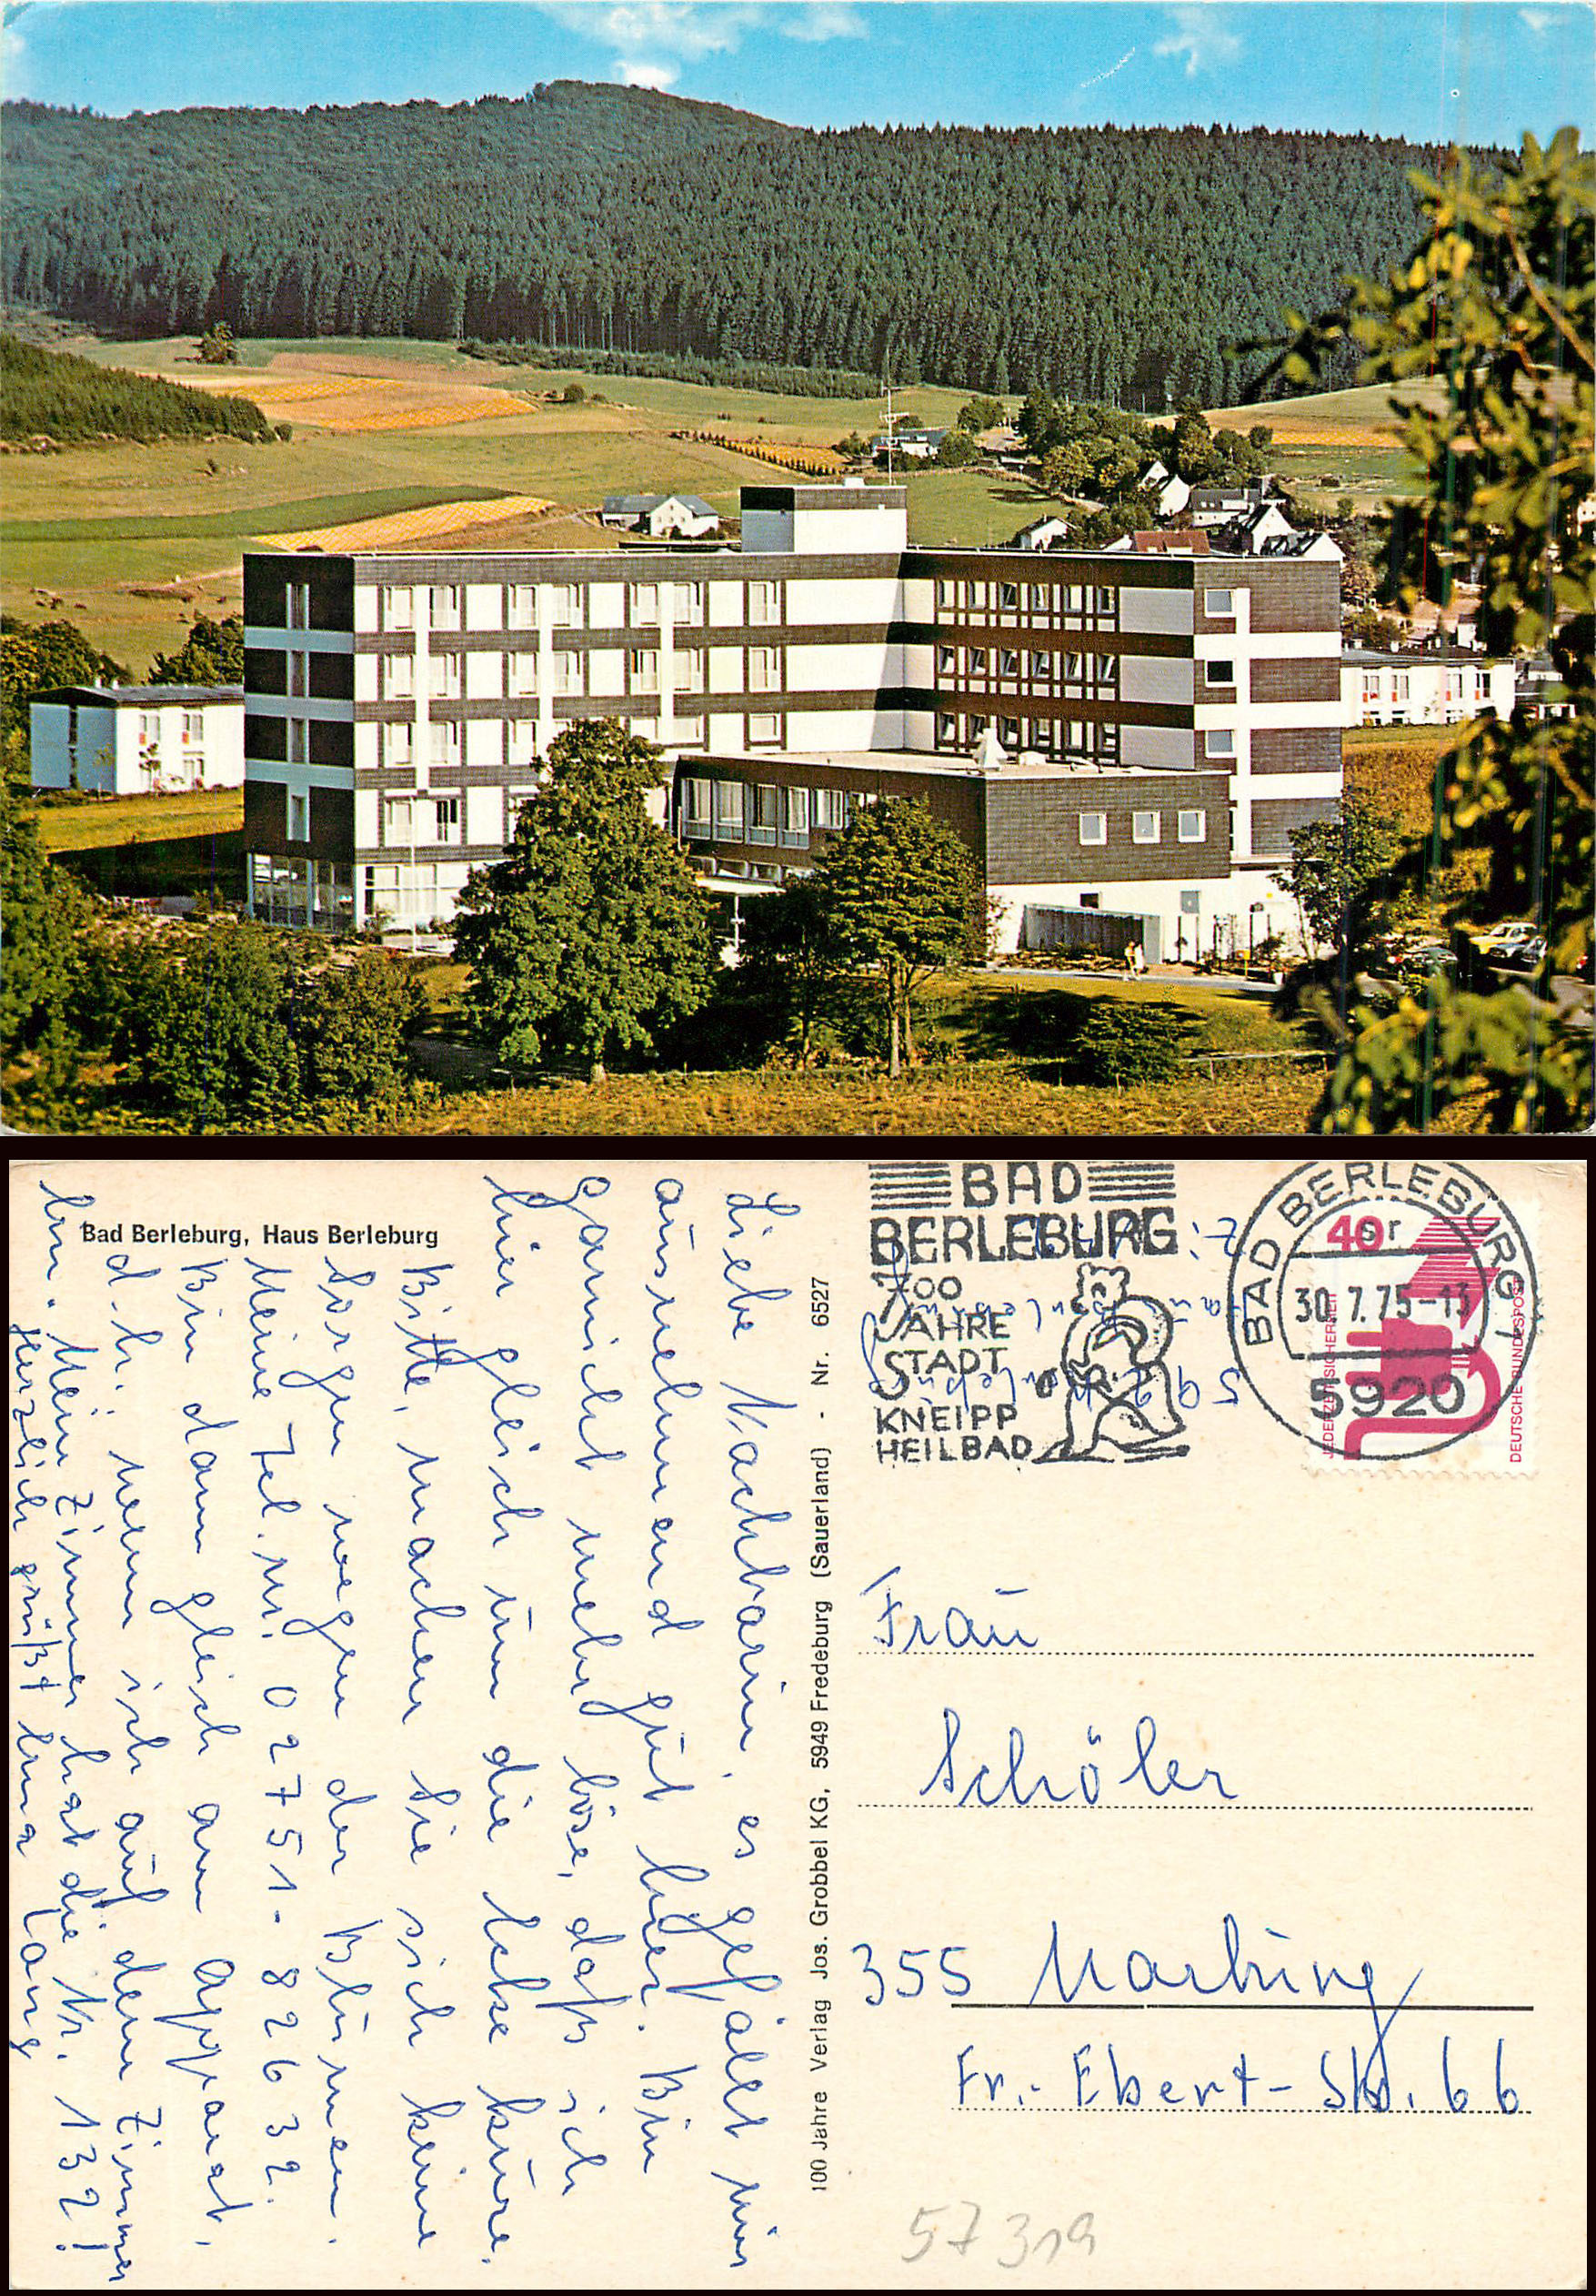 Bad Berleburg, Haus Berleburg
Liebe Nachbarin, es gefällt mir
ausnehmend gut hier. Bin
garnicht mehr böse, daß ich
hier gleich um die Ecke kure.
Bitte, machen Sie sich keine
Sorgen wegen der Blumen.
Meine Tel. nr. 02751-82632.
Bin dann gleich am Apparat,
d.h. wenn ich auf dem Zimmer
bin. Mein Zimmer hat die Nr. 132!
Herzlich grüßt
100 Jahre Verlag Jos. Grobbel KG, 5949 Fredeburg (Sauerland) - Nr. 6527
BAD
BERLEBURG
700
JAHRE
STADT
KNEIPP
HEILBAD
BAD BERLEBURG 1
sr
30.7.75-13
5920
40
JEDERZEIT SICHERHEIT
DEUTSCHE BUNDESPOST
Frau
Schöler
355 Marburg
Fr.-Ebert-Str. 66
57319